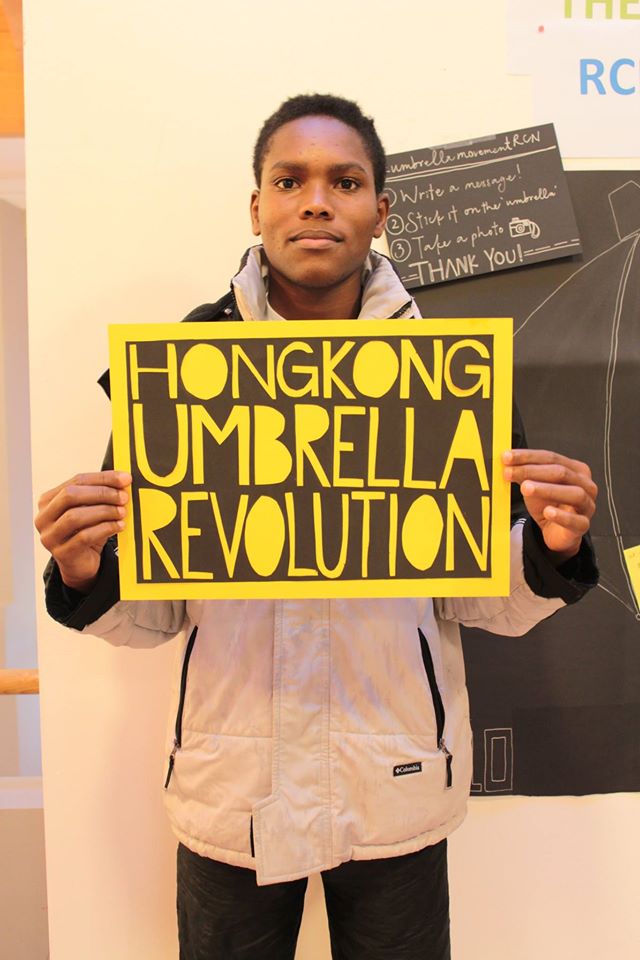 THE
RC
umbrella movement RCN
① Write a message!
② Stick it on the 'umbrella'
③ Take a photo
THANK YOU!
HONGKONG
UMBRELLA
REVOLUTION
Columbia